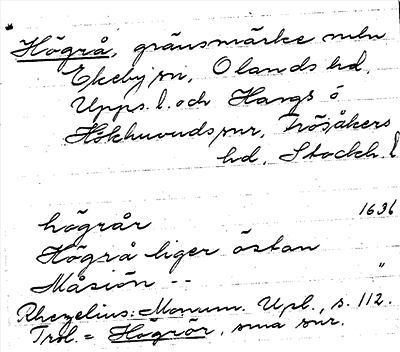 Högrå, gränsmärke mln
Ekeby sn, Olands hd,
Upps. l. och Hargs o
Hökhuvuds snr, Frösåkers
hd, Stockh. l
högrår 1636
Högrå liger östan
Måsiön -- "
Rhezelius: Monum. Upl., s. 112.
Trol. = Högrör, sma snr.